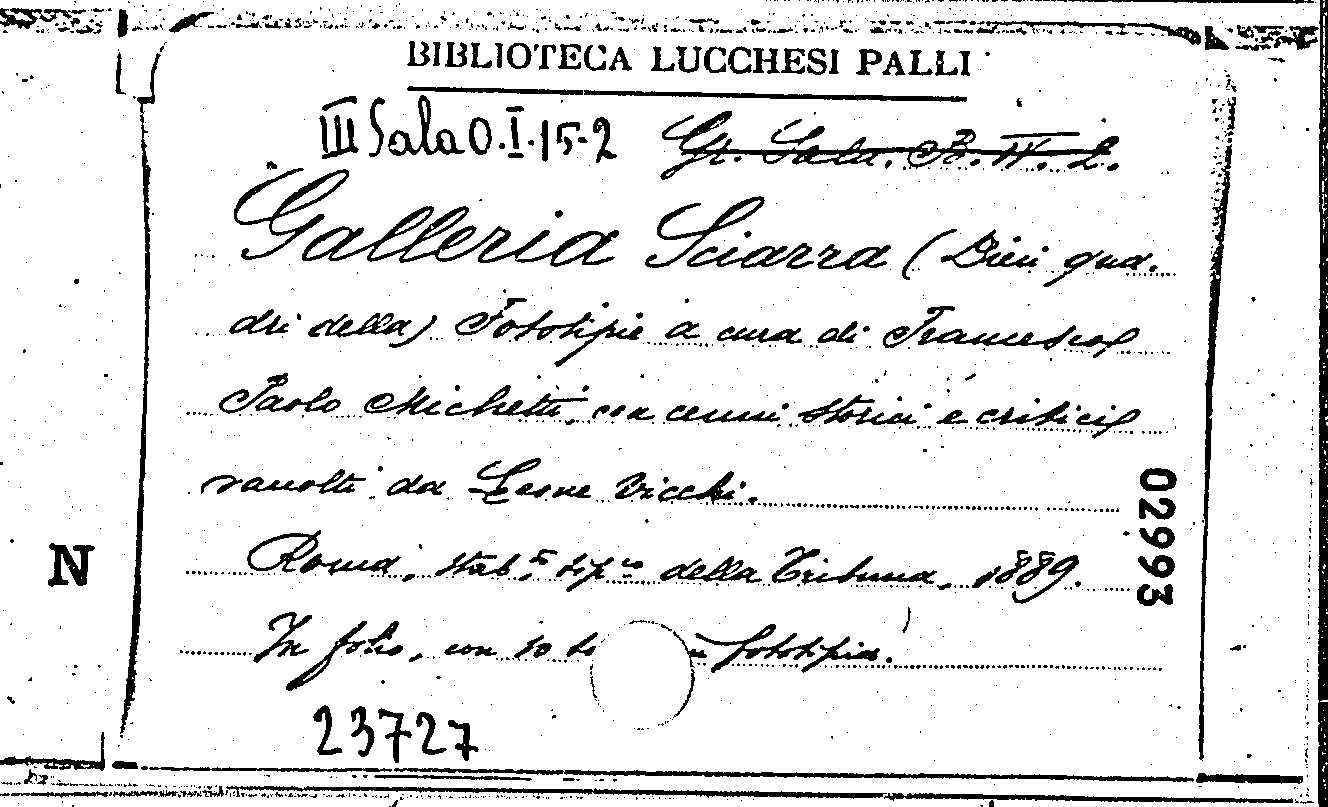 BIBLIOTECA LUCCHESI PALLI
III Sala O.I.15-2 Gr. Sala. B. IV. 2.
Galleria Sciarra (Dieci qua-
dri della) Fototipie a cura di Francesco
Paolo Michetti, con cenni storici e critici
raccolti da Leone Vicchi.
Roma, stab.º tip.co della Tribuna, 1889.
In folio, con 10 fototipia.
23727
N
02993